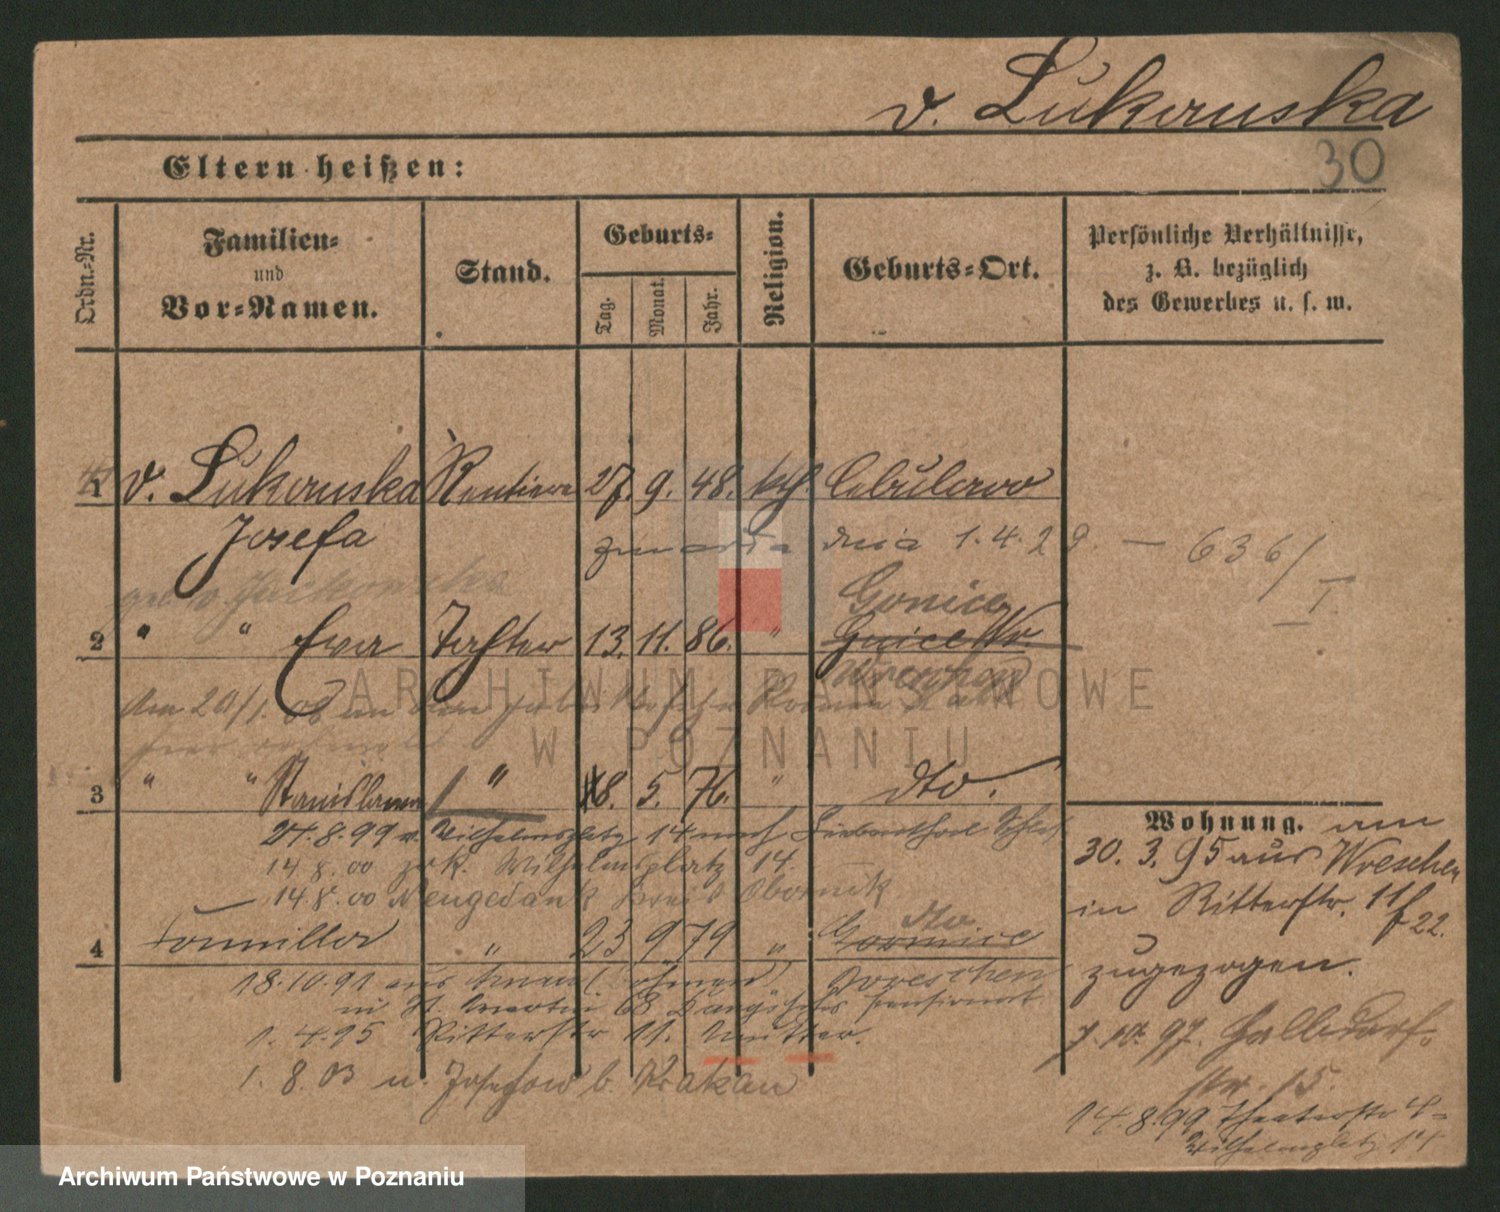 v. Lukowska
30
Eltern heißen:
Ordn.-Nr.
Familien-
und
Vor-Namen.
Stand.
Geburts-
Tag.
Monat.
Jahr.
Religion.
Geburts-Ort.
Persönliche Verhältnisse,
z. B. bezüglich
des Gewerbes u. s. w.
1 v. Lukowska Rentiere 27. 9. 48. kth. Cebulowo
Josefa
zmarła dnia 1.4.29. — 636/I
geb. v.
Gonice
2 " " Eva Tochter 13. 11. 86. "
Wreschen
Am 20/1. 08
hier
3 " " Stanislawa " 8. 5. 76. " dto.
27.8.99 v. Wilhelmsplatz 14 nach
14 8. 00 zrk. Wilhelmsplatz 14.
14.8.00 Neugedank Kreis Obornik
dto
4 " 23 9 79 "
Wreschen
18.10.91 aus
in St. Martin 68 Pensionat
1. 4.95 Ritterstr 11. Mutter.
1. 8. 03 n. Josefow b. Krakau
Wohnung. am
30. 3. 95 aus Wreschen
in Ritterstr. 11
f 22.
zugezogen.
7. 10. 97.
str. 15.
14.8.99 Theaterstr 4 =
Wilhelmsplatz 14
ARCHIWUM PAŃSTWOWE
W POZNANIU
Archiwum Państwowe w Poznaniu